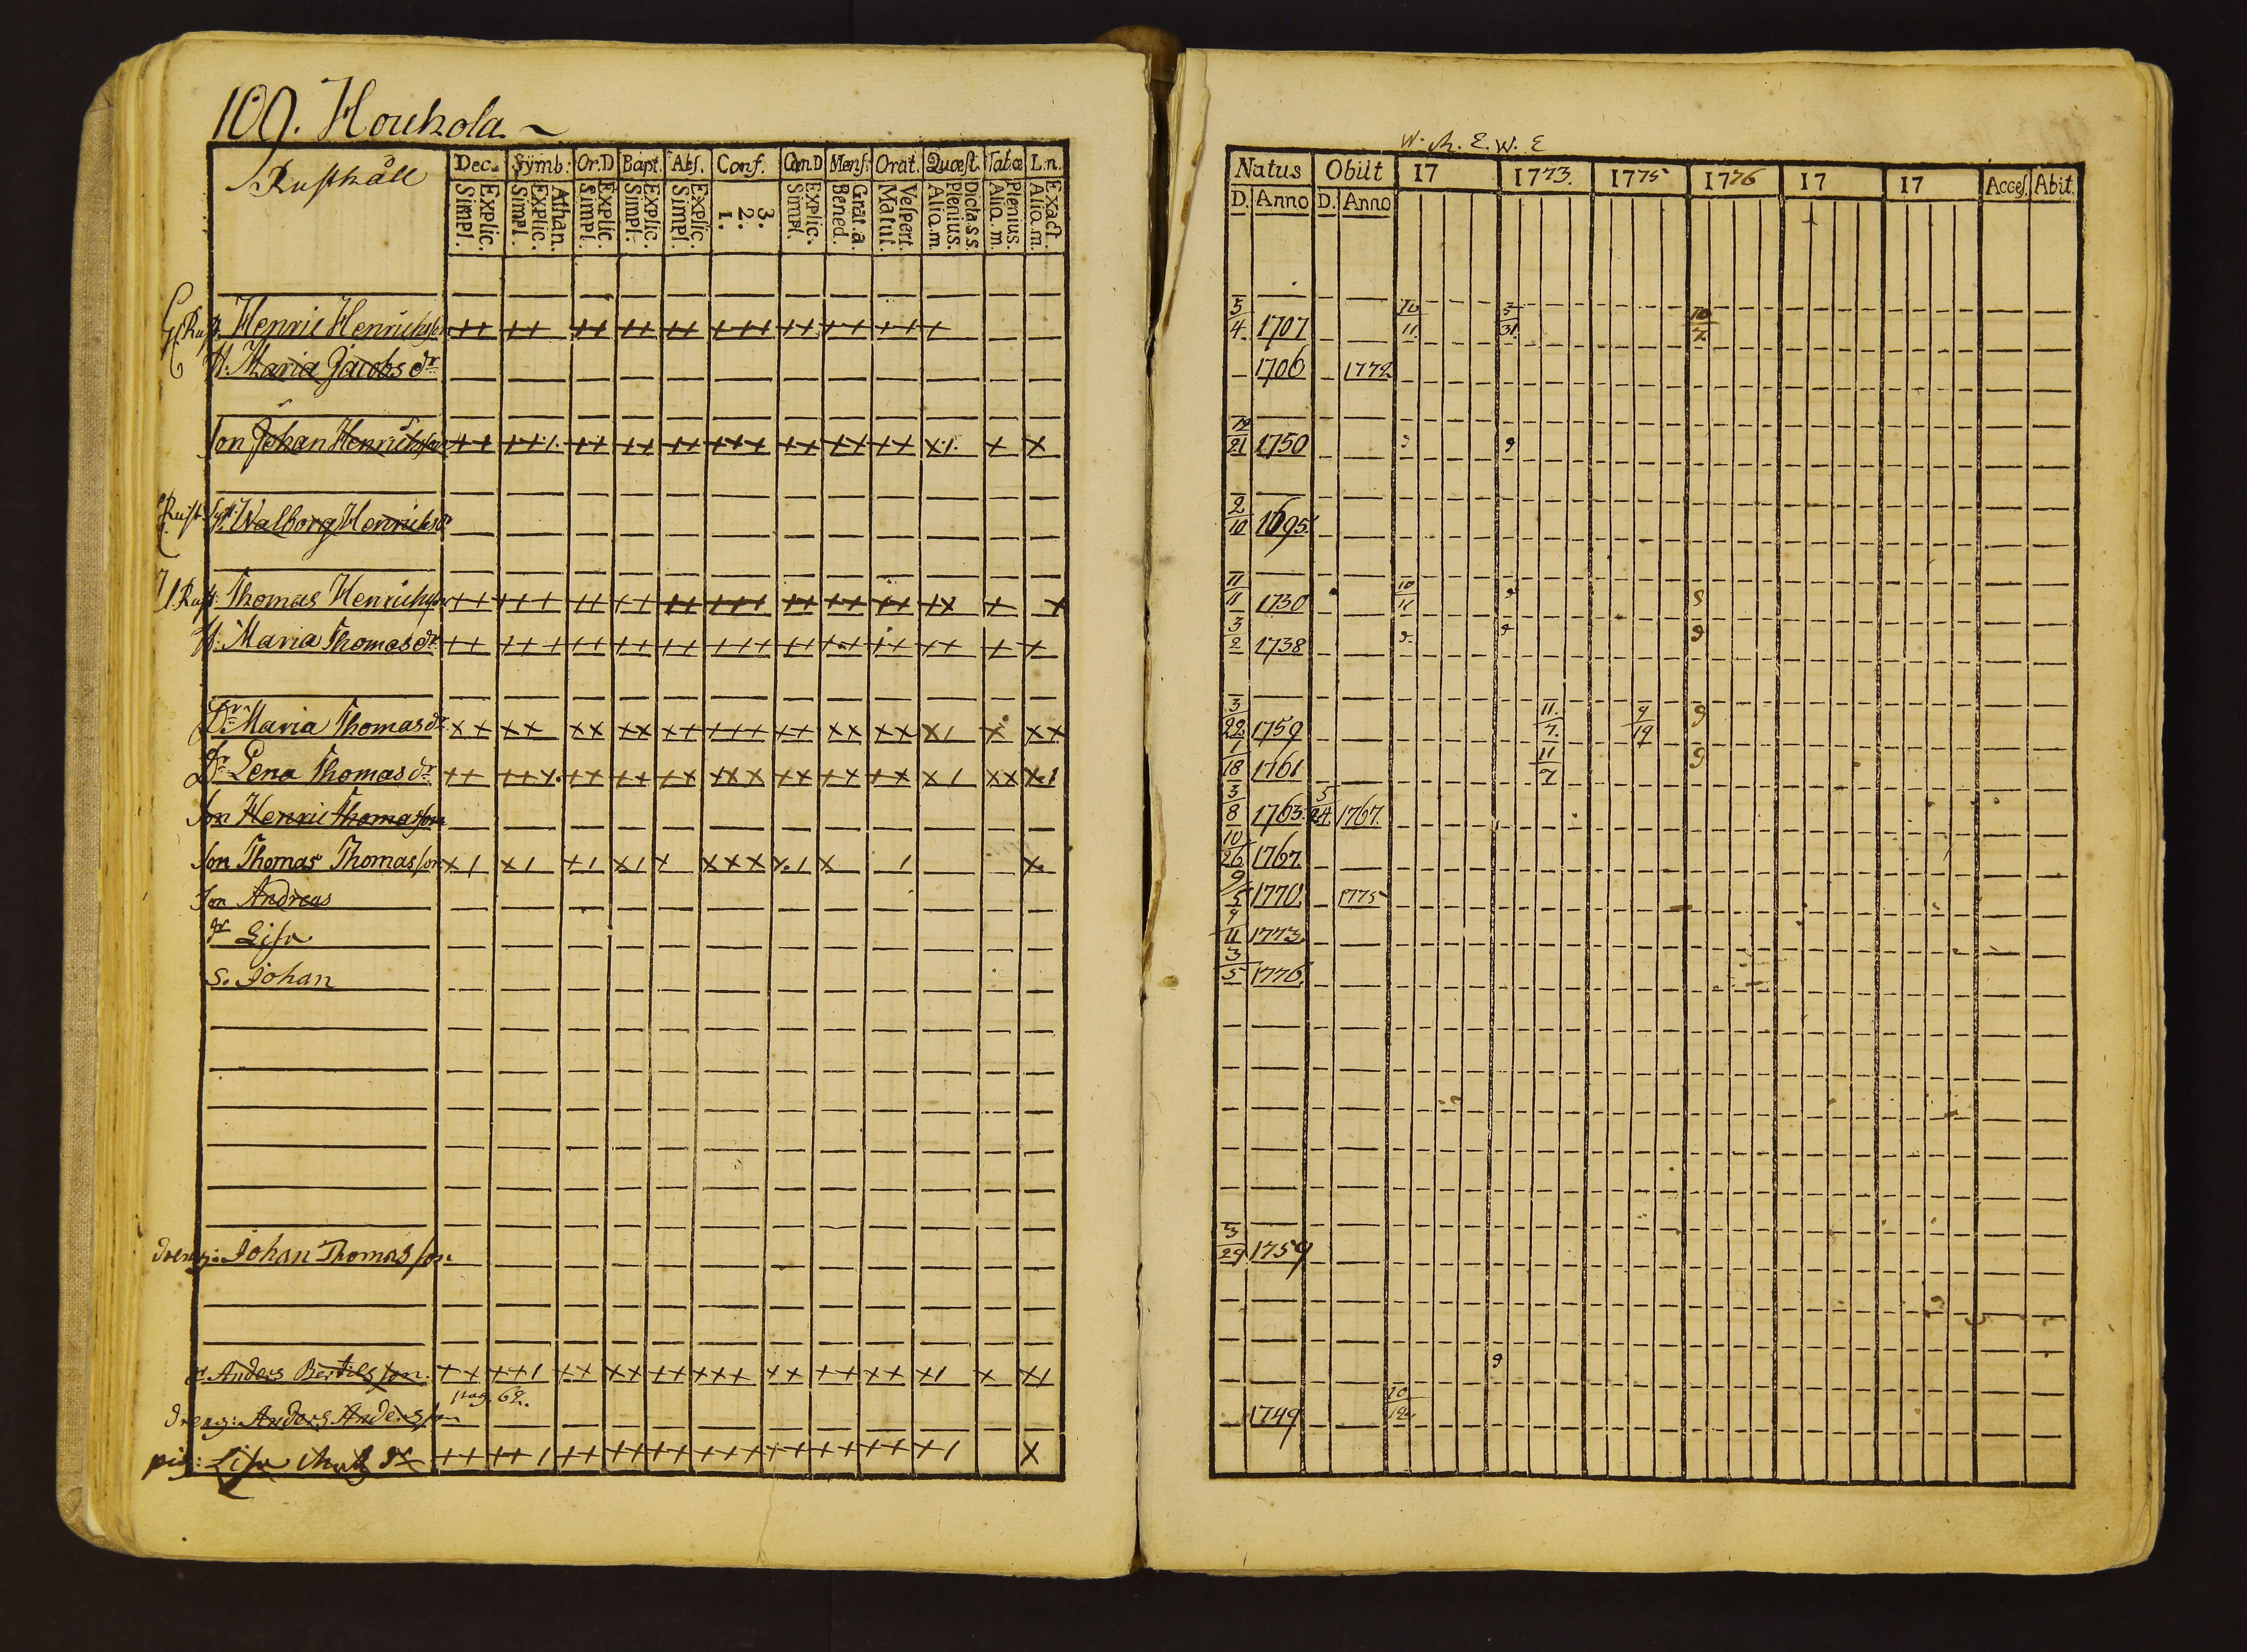 109. Houkola
W. R. E. W. E
Rusthåll Dec. Sÿmb: Or.D Bapt. Abs. Conf. Cœn.D Mens. Orat. Quæst. Tabœ L.n.
Explic. Simpl. Athan. Explic. Simpl. Explic. Simpl. Explic. Simpl. Explic. Simpl. 3. 2. 1. Explic. Simpl. Grat. a. Bened. Vespert. Matut. Dicta.s.s. Plenius. Aliq.m. Plenius. Aliq.m. Exact. Aliq.m.
Natus Obiit 17 1773. 1775 1776 17 17 Acces. Abit.
D. Anno D. Anno
G. Rust. Henric Henrichsson 5/4. 1707 10/11. 5/31. 10/7.
H. Maria Jacobs dr 1706 1772
Son Johan Henrichsson 12/21 1750
Rust. Walborg Henrichs dr 2/10 1695.
U. Rust: Thomas Henrichsson 11/11 1730 10/11
H: Maria Thomas dr 3/2 1738
Dr Maria Thomas dr 3/22 1759 11./7. 9/19
Dr Lena Thomas dr 1/18 1761 11/7
Son Henric Thomasson 3/8 1763. 5/24 1767.
Son Thomas Thomasson 10/26 1767.
Son Andreas 9/5 1770. 1775
dr Lisa 9/11 1773.
S. Johan 3/5 1776.
dreng: Johan Thomasson 3/29 1759
Anders Bertilsson.
pag. 62.
dreng: Anders Andersson 1749 10/12
pig: Lisa dr